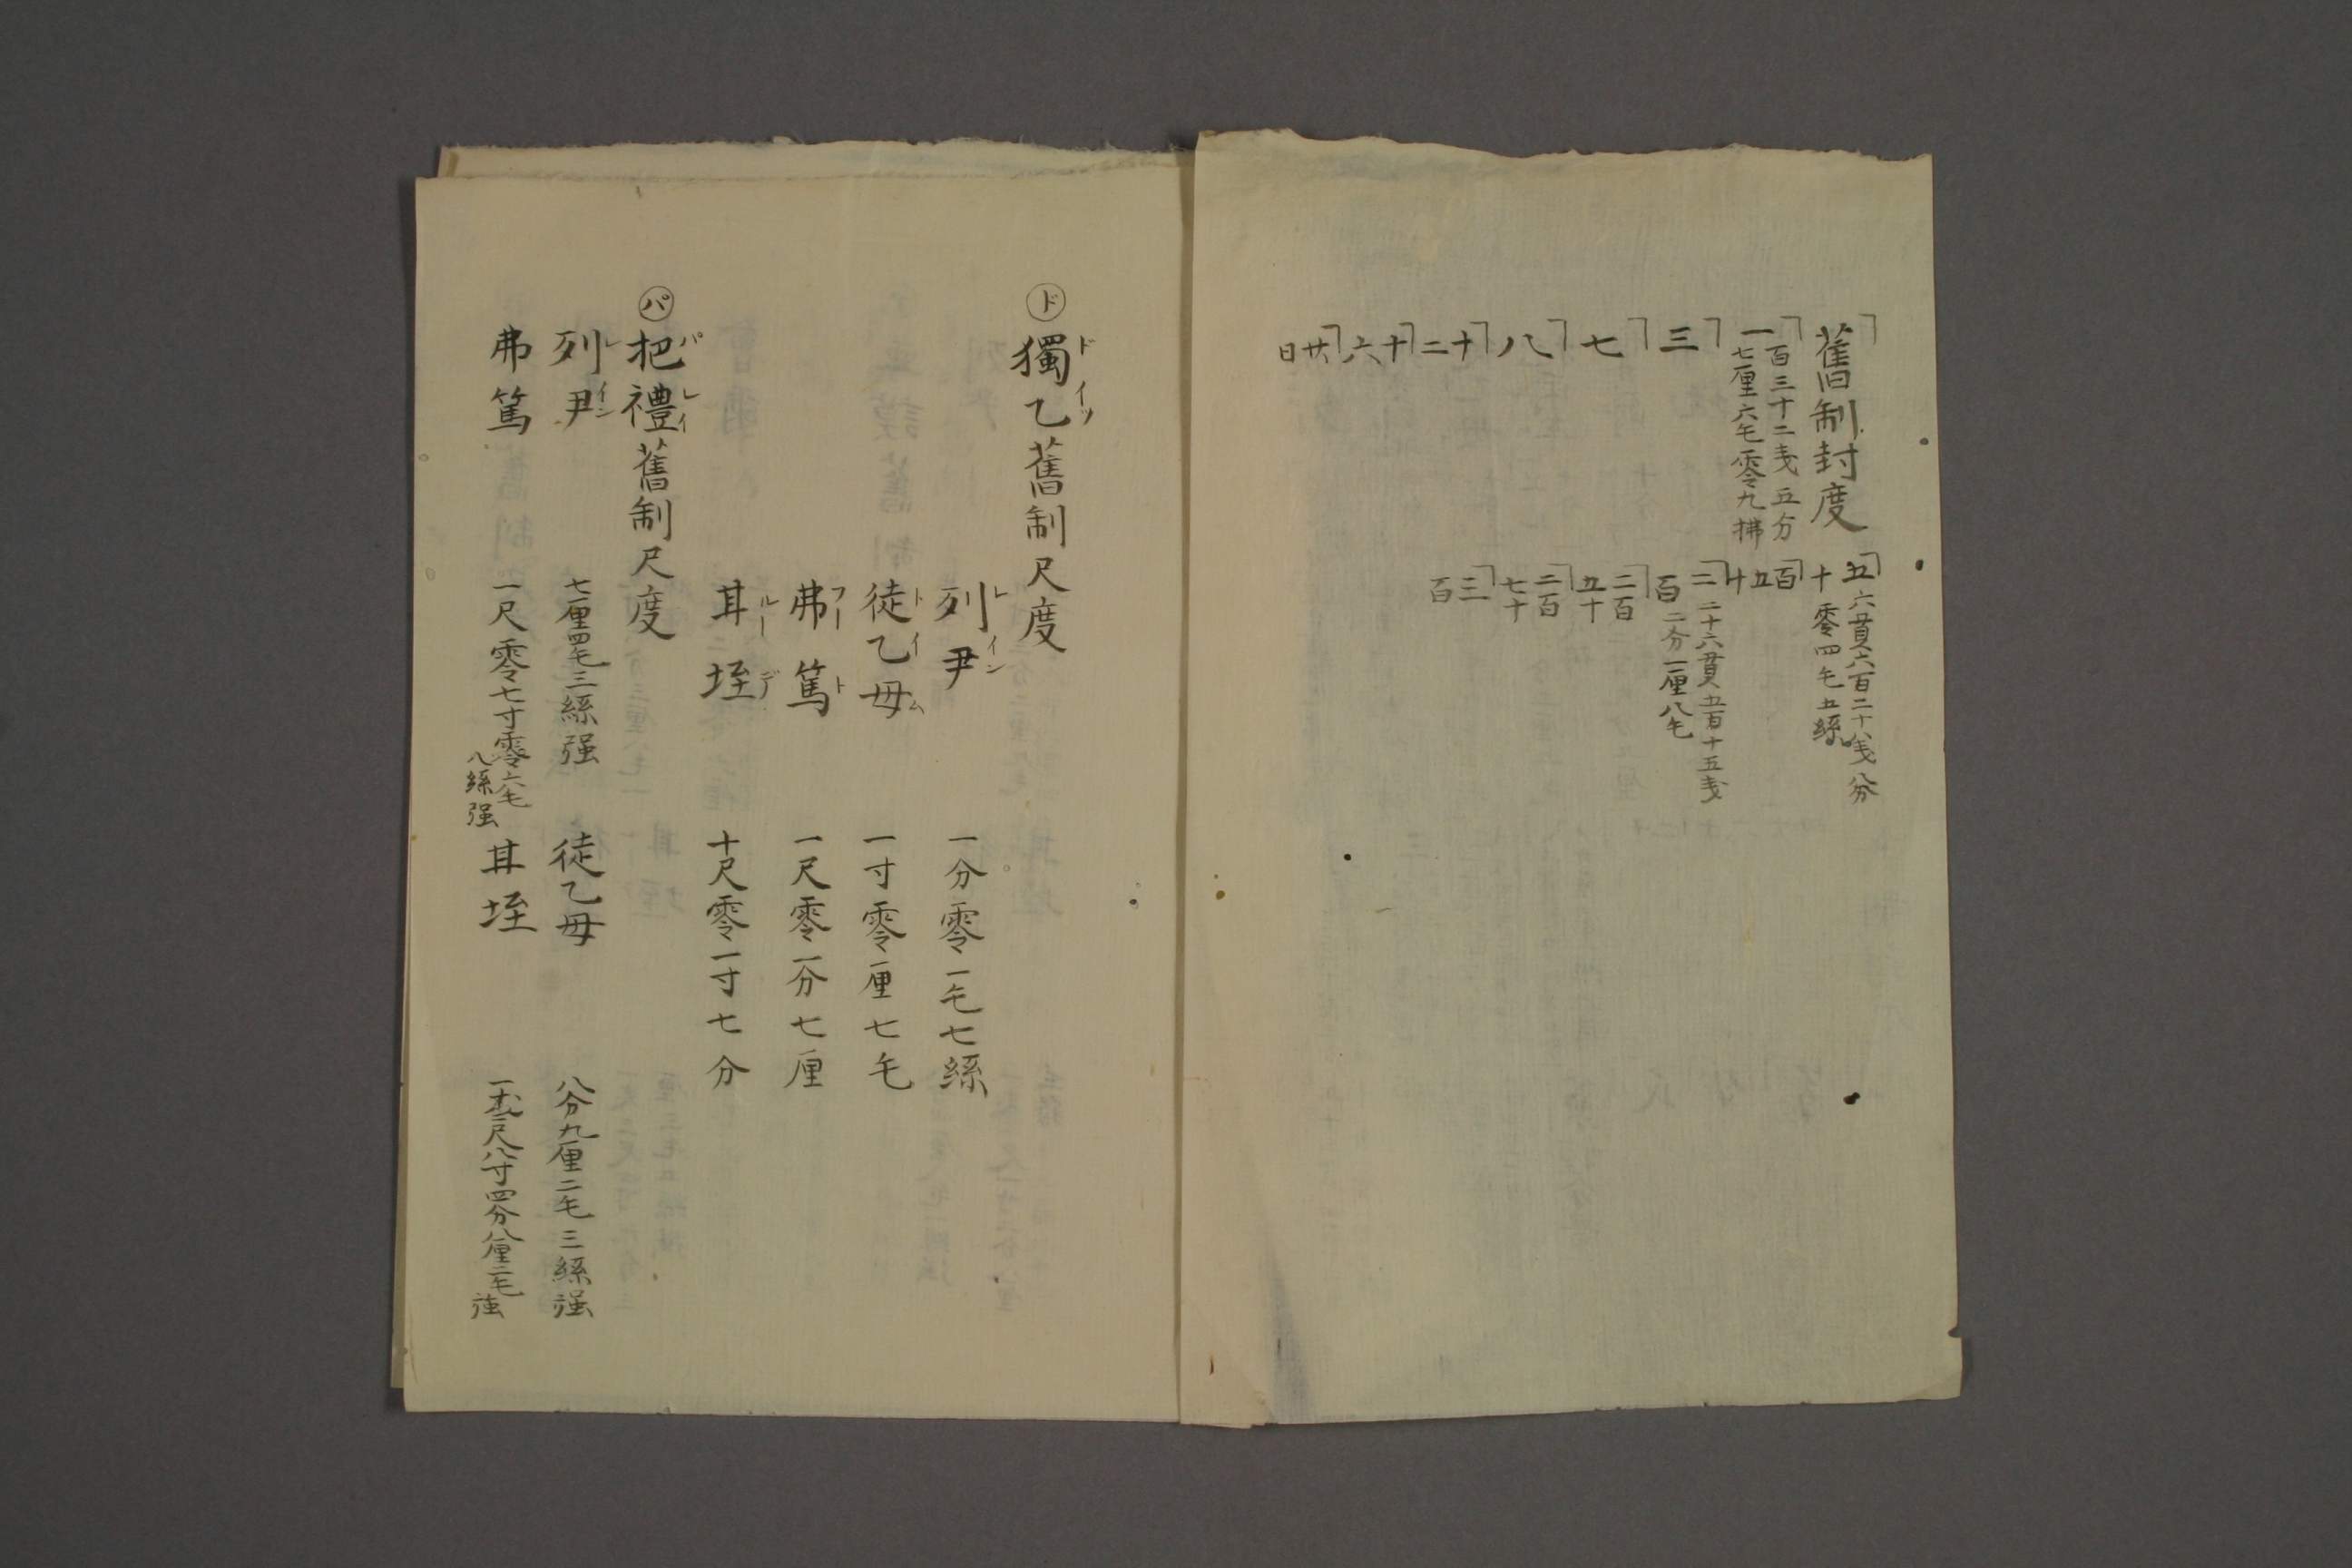 舊制封度
一 百三十二戔五分
七厘六毛零九拂
三
七
八
十二
十六
廿八
五十 六貫六百二十八戔八分
零四毛五絲
百五十
二百 二十六貫五百十五戔
二分一厘八毛
二百五十
二百七十
三百
ド 獨乙舊制尺度 ドイツ
列尹 レイン 一分零一毛七絲
徒乙毋 トイム 一寸零一厘七毛
弗篤 フート 一尺零一分七厘
耳垤 ルーデ 十尺零一寸七分
パ 把禮舊制尺度 パレイ
列尹 レイン 七厘四毛三絲强 徒乙毋 八分九厘二毛三絲强
弗篤 一尺零七寸零六毛八絲强 耳垤
尺八寸四分八厘二毛強